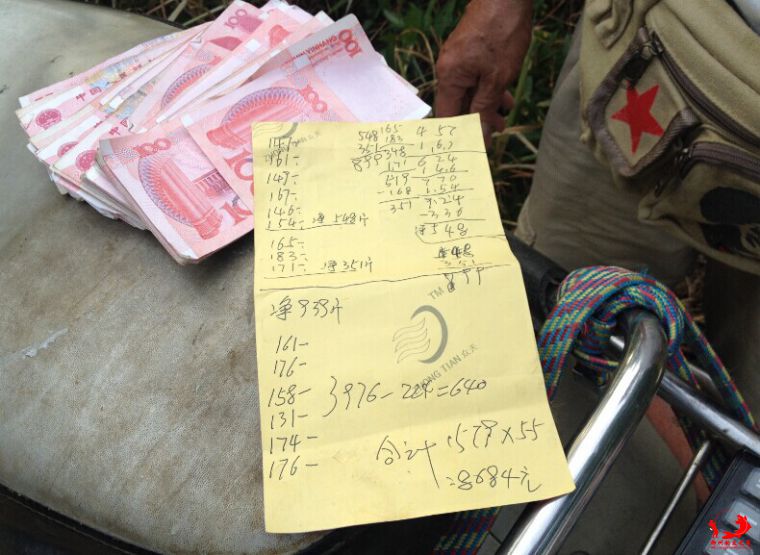 100
100
100
100
YINHANG
147-
161-
149-
167-
146-
154- 净548斤
165-
183-
171- 净351斤
548
351
899
165
183
348
171
519
-168
351
4 57
1.6.7
6 24
1 4.6
7 70
1.54
9.24
-3.36
净548
899
净939斤
161-
176-
158- }976-
=640
131-
174-
176-
合计 1579×55
=8684元
TM
ZHONG TIAN 众天